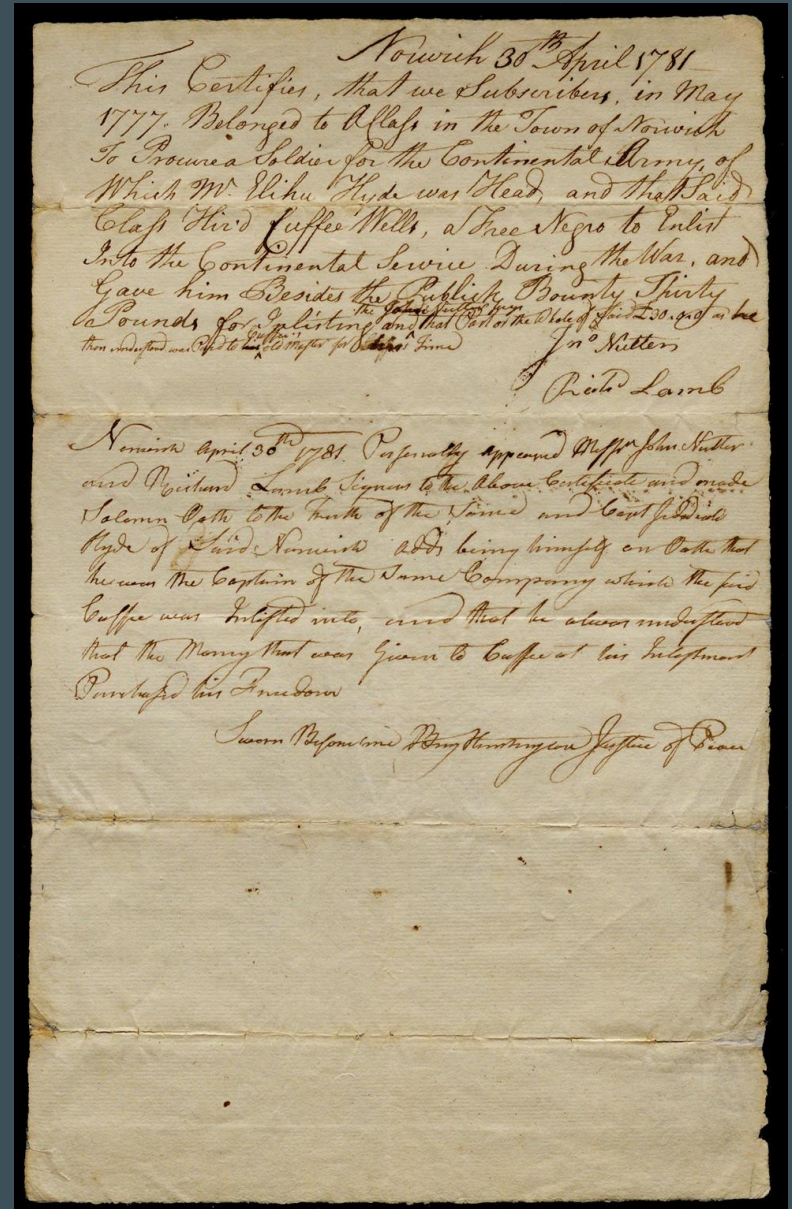 Norwich 30th April 1781
This Certifies, that we Subscribers, in May
1777. Belonged to a Class in the Town of Norwich
To Procure a Soldier for the Continental Army, of
Which Mr. Elihu Hyde was Head, and that Said
Class Hir'd Cuffee Wells, a Free Negro to Enlist
Into the Continental Service During the War, and
Gave him Besides the Publick Bounty Thirty
Pounds for Inlisting and that Part or the Whole of Said £30.0.0 as we
then understood was Paid to old Master for Time
Jno Nutter
Richd Lamb
Norwich April 30th 1781. Personally appeared Messrs John Nutter
and Richard Lamb Signers to the Above Certificate and made
Solomn Oath to the Truth of the Same and Capt Jedidiah
Hyde of Said Norwich adds being himself on Oath that
he was the Captain of the Same Company which the said
Cuffee was Inlisted into, and that he always understood
that the Money that was Given to Cuffee at his Inlistment
Purchased his Freedom
Sworn Before me Benj Huntington Justice of Peace